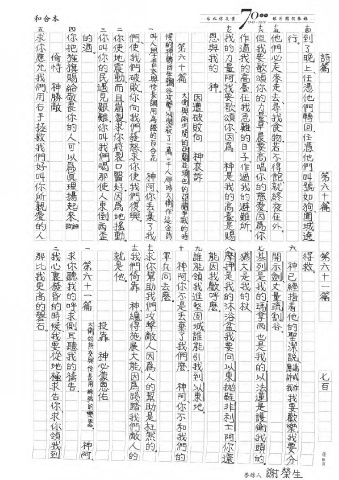 和合本
詩篇　第六十篇
六 到了晚上任憑他們轉回任憑他們叫號如狗圍城遶
行。
他們必走來走去尋找食物若不得飽就終夜在外。
但我要歌頌你的力量早晨要高唱你的慈愛因為你
作過我的高臺在我急難的日子作過我的避難所
我的力量阿我要歌頌你因為　神是我的高臺是賜
恩與我的　神。
因遭破敗向　神哀訴
第六十篇　大衛與兩河間的亞蘭並瑣巴的亞蘭爭戰的時
候約押轉回在鹽谷攻擊以東殺了一萬二千人那時大衛作這金詩
叫人學習交與伶長調用為證的百合花。　神阿你丟棄了我
們使我們破敗你向我們發怒求你使我們復興
二 你使地震動而且崩裂求你將裂口醫好因為地搖動
三 你叫你的民遇見艱難你叫我們喝那使人東倒西歪
的酒。
四 你把旌旗賜給敬畏你的人可以為真理揚起來 細拉
倚恃　神勝敵
五 求你應允我們用右手拯救我們好叫你所親愛的人
第六十一篇　七百
得救。
六 神已經指著他的聖潔說我要歡樂我要分
開示劍丈量疏割谷
七 基列是我的瑪拿西也是我的以法蓮是護衛我頭的
猶大是我的杖
八 摩押是我的沐浴盆我要向以東拋鞋非利士阿你還
能因我歡呼麼
九 誰能領我進堅固城誰能引我到以東地
十 神阿你不是丟棄了我們麼　神阿你不和我們的
軍兵同去麼
十一 求你幫助我們攻擊敵人因為人的幫助是枉然的。
十二 我們倚靠　神纔得施展大能因為踐踏我們敵人的
就是他。
投靠　神必蒙庇佑
第六十一篇　大衛的詩交與伶長用絲弦的樂器。　神阿
求你聽我的呼求側耳聽我的禱告
二 我心裏發昏的時候我要從地極求告你求你領我到
那比我更高的磐石。
參終人　謝榮生